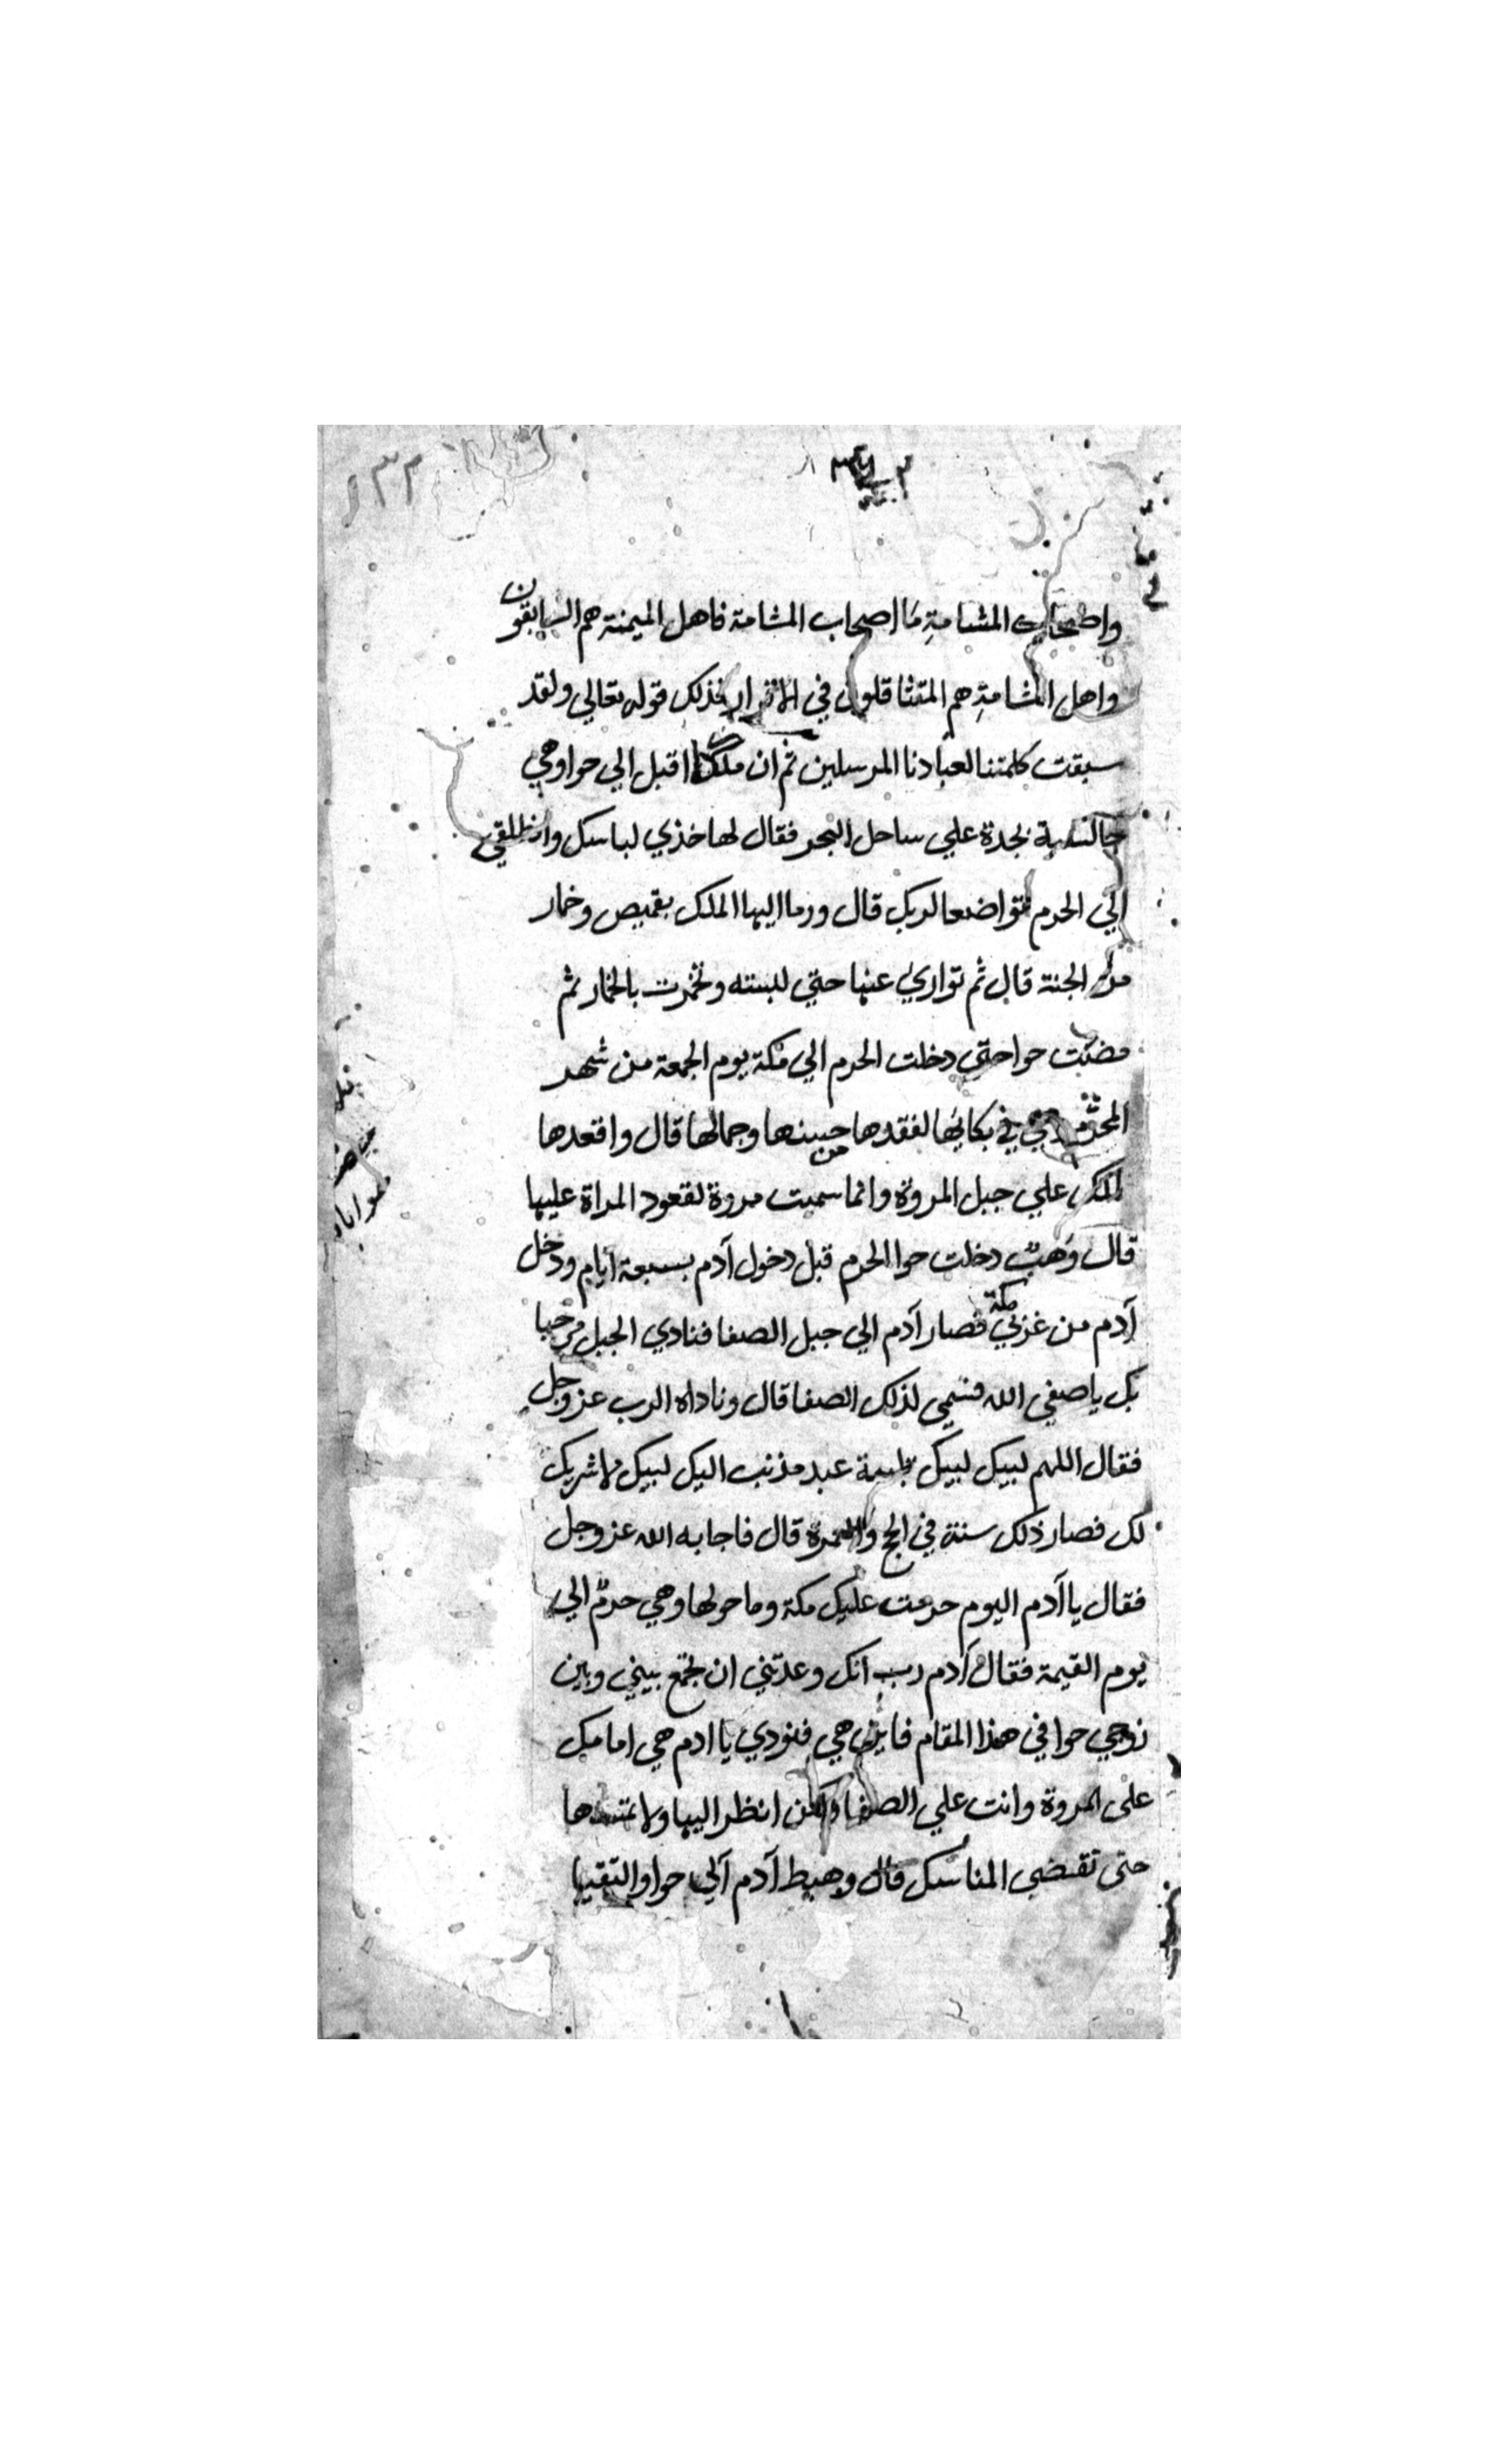 واصحاب المشامة ما اصحاب المشامة فاهل الميمنة هم السابقون
واهل المشامة هم المتثاقلون في الاقرار فذلك قوله تعالي ولقد
سبقت كلمتنا لعبادنا المرسلين ثم ان ملكا اقبل الي حوا وهي
جالسة بجدة علي ساحل البحر فقال لها خذي لباسك وانطلقي
الي الحرم متواضعا لربك قال ورما اليها الملك بقميص وخمار
من الجنة قال ثم تواري عنها حتي لبسته وتخمرت بالخمار ثم
مضت حوا حتي دخلت الحرم الي مكة يوم الجمعة من شهر
المحرم وهي في بكائها لفقدها من حسنها وجمالها قال واقعدها
الملك علي جبل المروة وانما سميت مروة لقعود المراة عليها
قال وهب دخلت حوا الحرم قبل دخول آدم بسبعة ايام ودخل
آدم من غربي مكة فصار آدم الي جبل الصفا فنادي الجبل مرحبا
بك يا صفي الله فسمي لذلك الصفا قال وناداه الرب عز وجل
فقال اللهم لبيك لبيك تلبية عبد مذنب اليك لبيك لا شريك
لك فصار ذلك سنة في الحج والعمرة قال فاجابه الله عز وجل
فقال يا آدم اليوم حرمت عليك مكة وما حولها وهي حرم الي
يوم القيمة فقال آدم رب انك وعدتني ان تجمع بيني وبين
زوجي حوا في هذا المقام فاين هي فنودي يا ادم هي امامك
على المروة وانت علي الصفا ولكن انظر اليها ولا تمسها
حتى تقضي المناسك قال وهبط آدم الي حوا والتقيا